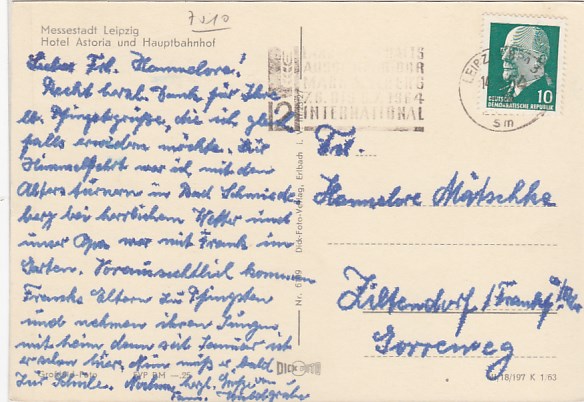 7010
Messestadt Leipzig
Hotel Astoria und Hauptbahnhof
Liebes Frl. Hannelore!
Recht herzl. Dank für Ihre
lb. Pfingstgrüße, die ich gleich-
falls erwidern möchte. Zu
Himmelfahrt war ich mit den
Altersturnern in Bad Schmiede-
berg bei herrlichem Wetter und
unser Opa war mit Frank im
Garten. Voraussichtlich kommen
Franks Eltern zu Pfingsten
und nehmen ihren Jungen
mit heim, denn seit Januar ist
er schon hier. Nun muß er bald
zur Schule. Nochm. hzgl.
Fam.
Großbild-Foto EVP DM —.25
Nr. 6199 Dick-Foto-Verlag, Erlbach i. V.
DICK
LEIPZIG
INTERNATIONAL
DEUTSCHE
DEMOKRATISCHE REPUBLIK
10
Frl.
Hannelore Mätschke
Ziltendorf/Frankf.
Gorreweg
III/18/197 K 1/63